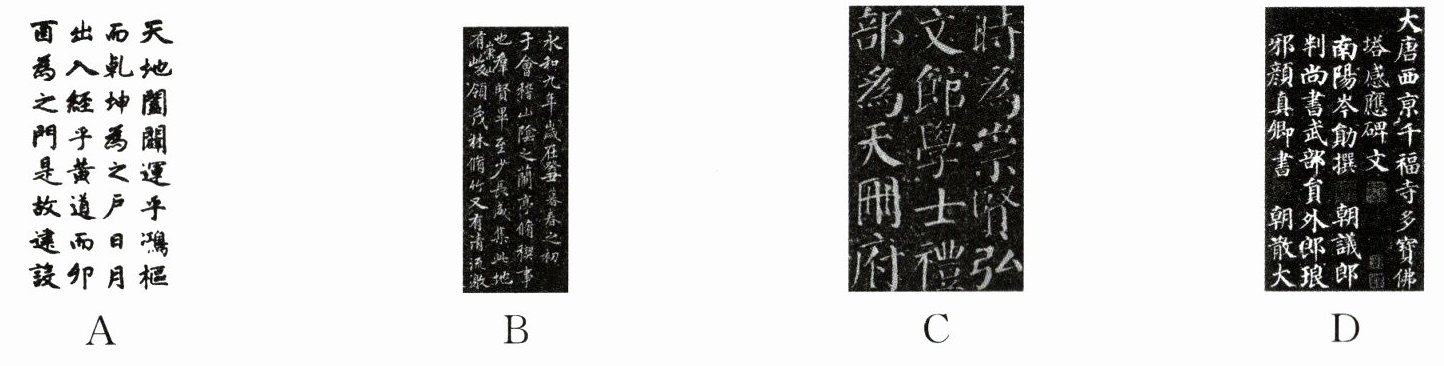 天地闔闢運乎鴻樞
而乾坤為之戶日月
出入經乎黃道而卯
酉為之門是故建設
A
永和九年歲在癸丑暮春之初
于會稽山陰之蘭亭脩稧事
也羣賢畢至少長咸集此地
有崇山峻領茂林脩竹又有清流激
B
時為崇賢弘
文館學士禮
部為天冊府
C
大唐西京千福寺多寶佛
塔感應碑文
南陽岑勛撰 朝議郎
判尚書武部員外郎琅
邪顏真卿書 朝散大
D